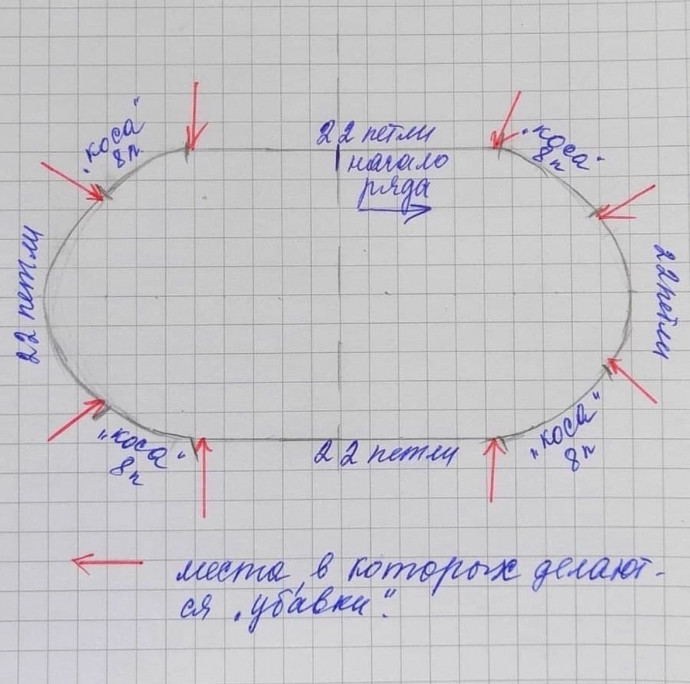 „коса"
8п.
22 петли
начало
ряда
„коса"
8п
22 петли
22 петли
„коса"
8п
22 петли
„коса"
8п
места, в которых делают-
ся „убавки".